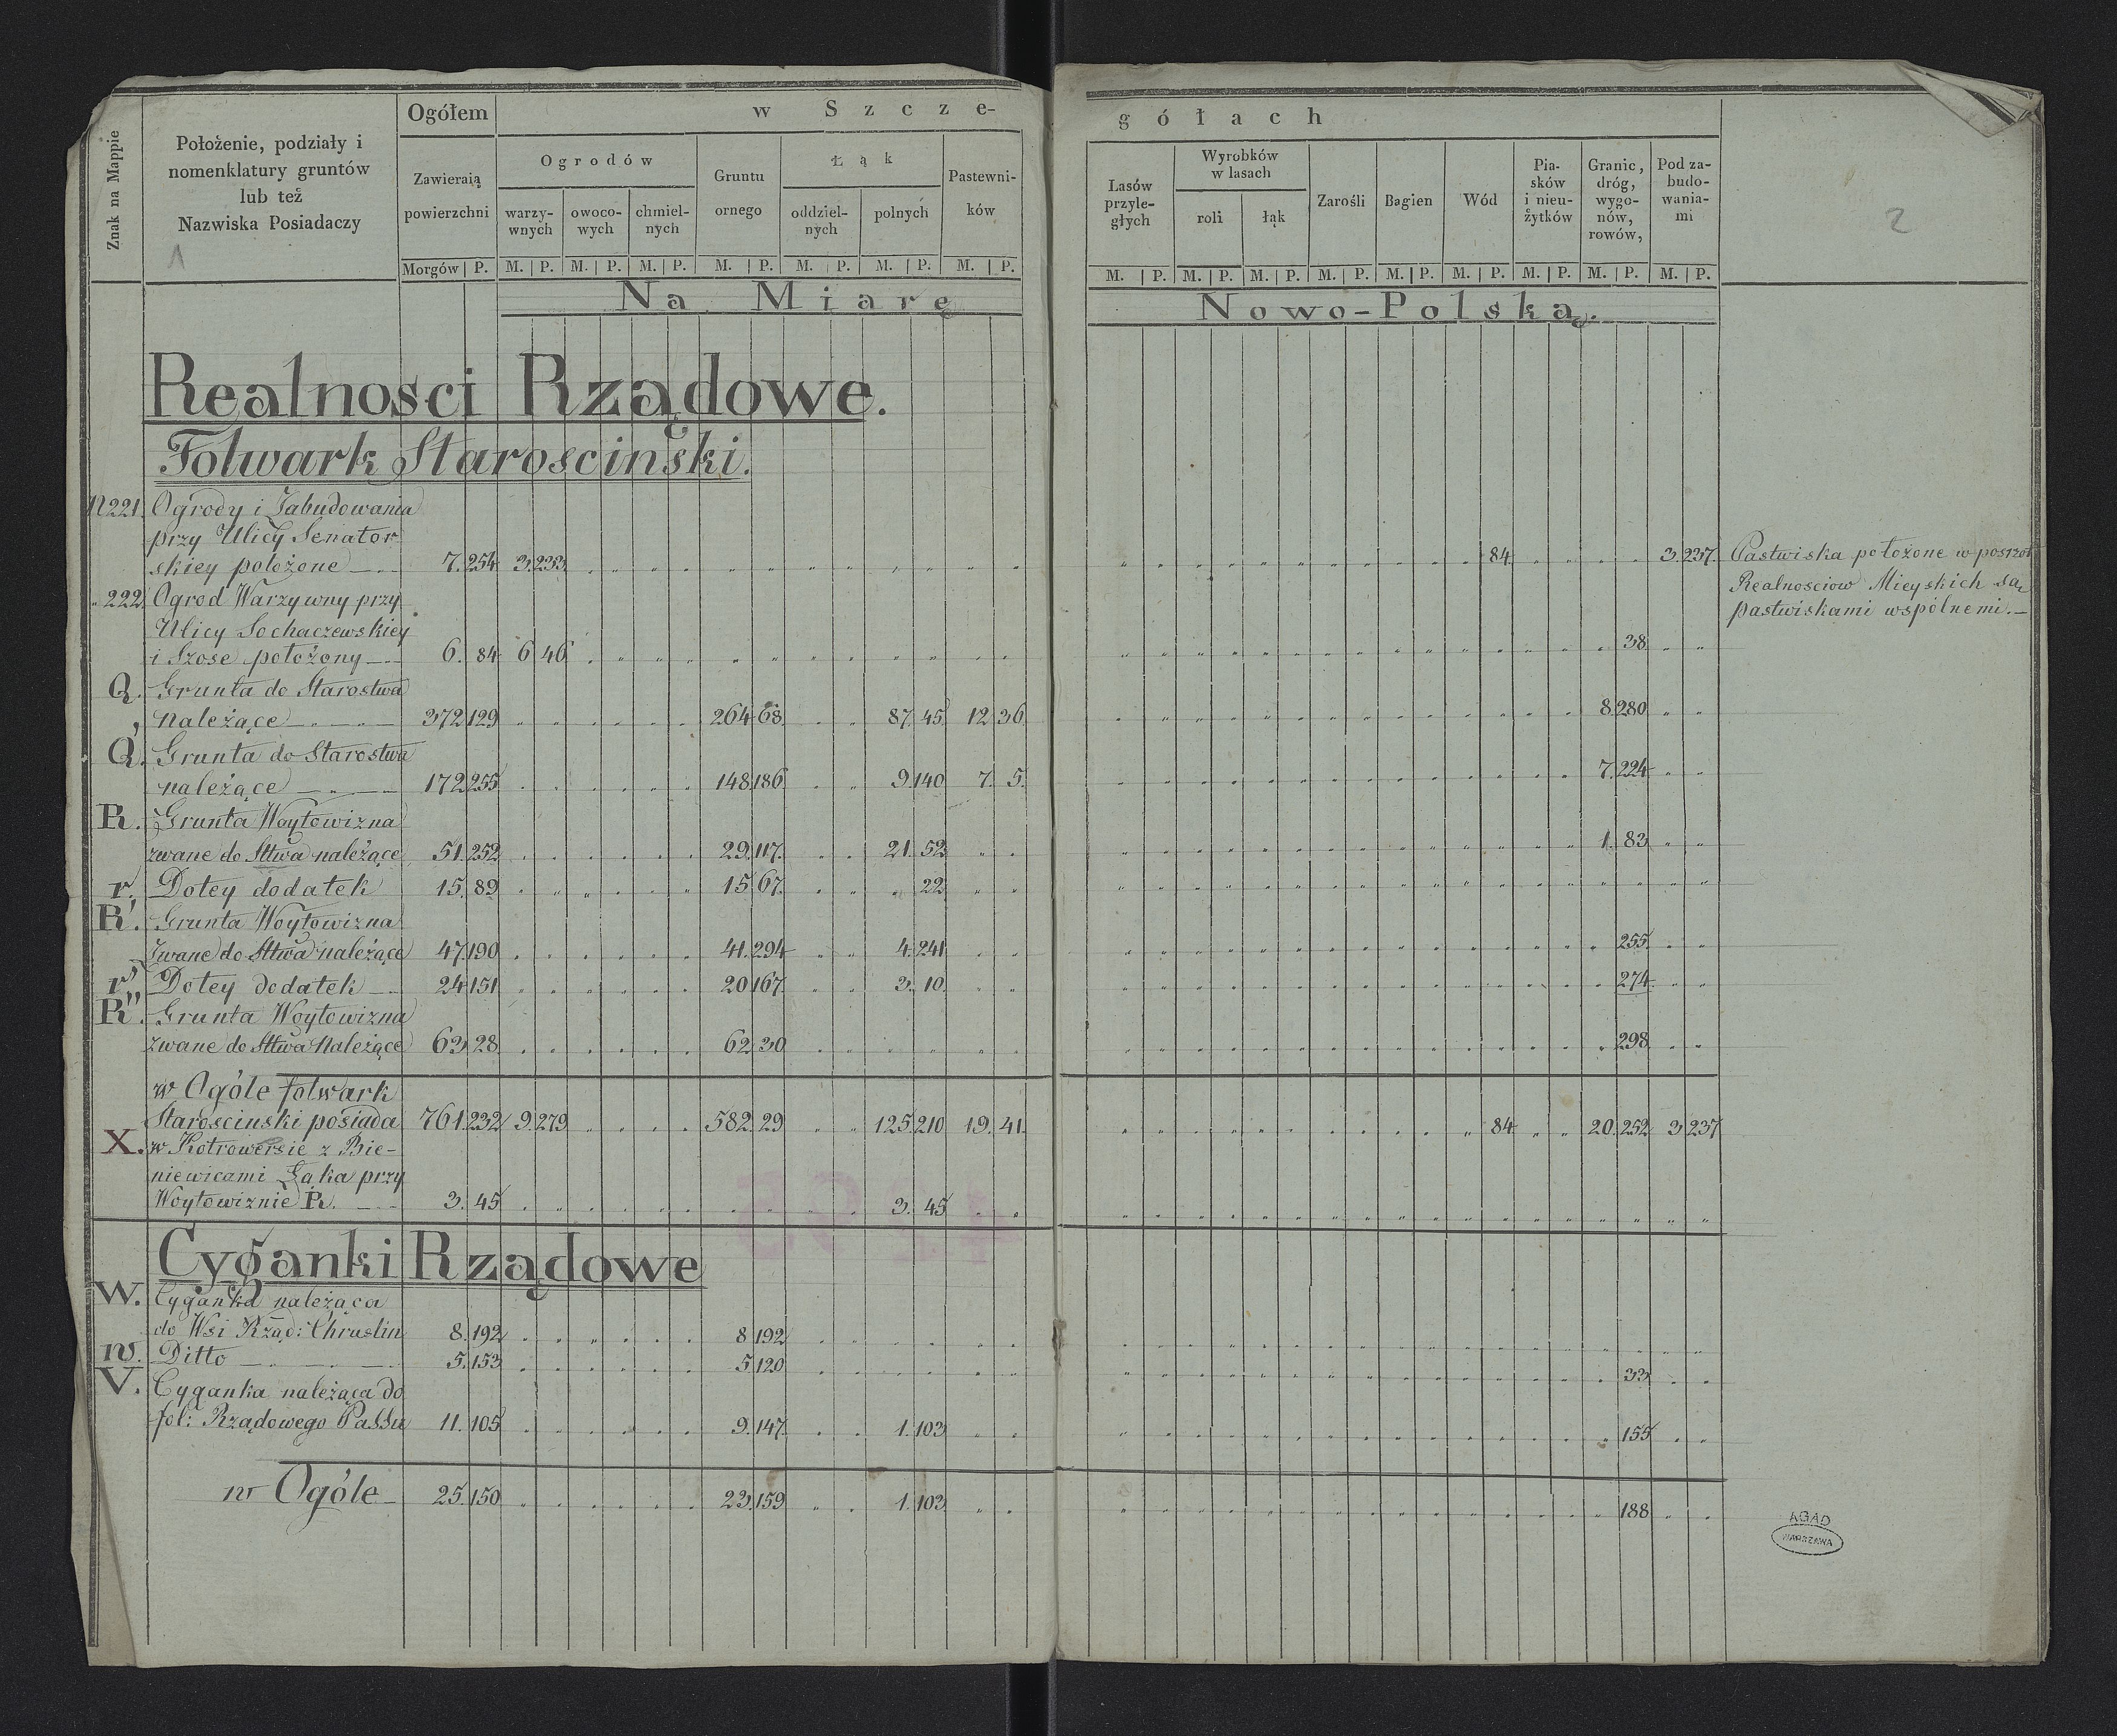 Znak na Mappie
Położenie, podziały i
nomenklatury gruntów
lub też
Nazwiska Posiadaczy
1
Ogółem
Zawieraią
powierzchni
Morgów P.
w Szcze-
Ogrodów
warzy-
wnych
M. P.
owoco-
wych
M. P.
chmiel-
nych
M. P.
Gruntu
ornego
M. P.
Łąk
oddziel-
nych
M. P.
polnych
M. P.
Pastewni-
ków
M. P.
gółach
Lasów
przyle-
głych
M. P.
Wyrobków
w lasach
roli
M. P.
łąk
M. P.
Zarośli
M. P.
Bagien
M. P.
Wód
M. P.
Pia-
sków
i nieu-
żytków
M. P.
Granic,
dróg,
wygo-
nów,
rowów,
M. P.
Pod za-
budo-
wania-
mi
M. P.
2
Na Miarę Nowo-Polską.
Realnosci Rządowe.
Folwark Staroscinski.
N221. Ogrody i Zabudowania
przy Ulicy Senator
skiey położone 7. 254 3. 233 84 3. 237.
222 Ogrod Warzywny przy
Ulicy Sochaczewskiey
i Szose położony 6. 84 6 46 38
Q. Grunta do Starostwa
należące 372 129 264 68 87. 45 12 36 8. 280
Q'. Grunta do Starostwa
należące 172 255 148 186 9. 140 7. 5. 7. 224
R. Grunta Woytowizna
zwane do Sttwa należące 51. 252 29. 117. 21. 52 1. 83
r. Dotey dodatek 15. 89 15. 67. 22
R'. Grunta Woytowizna
zwane do Sttwa należące 47. 190 41. 294 4. 241 255
r' Dotey dodatek 24 151 20 167 3. 10 274
R". Grunta Woytowizna
zwane do Sttwa Należące 63 28 62 30 298
w Ogóle folwark
Staroscinski posiada 761. 232 9. 279 582. 29 125. 210 19. 41. 84 20. 252 3 237
X. w Kotrowersie z Bie-
niewicami Łąka przy
Woytowiznie R. 3. 45 3. 45
Cyganki Rządowe
W. Cyganka należąca
do Wsi Rząd: Chruslin 8. 192 8 192
w. Ditto 5. 153 5 120 33
V. Cyganka należąca do
fol: Rządowego Passu 11. 105 9. 147. 1. 103 155
w Ogóle 25. 150 23. 159 1. 103 188
Pastwiska położone w
Realnosciow Mieyskich są
pastwiskami wspólnemi.
4295
AGAD
WARSZAWA